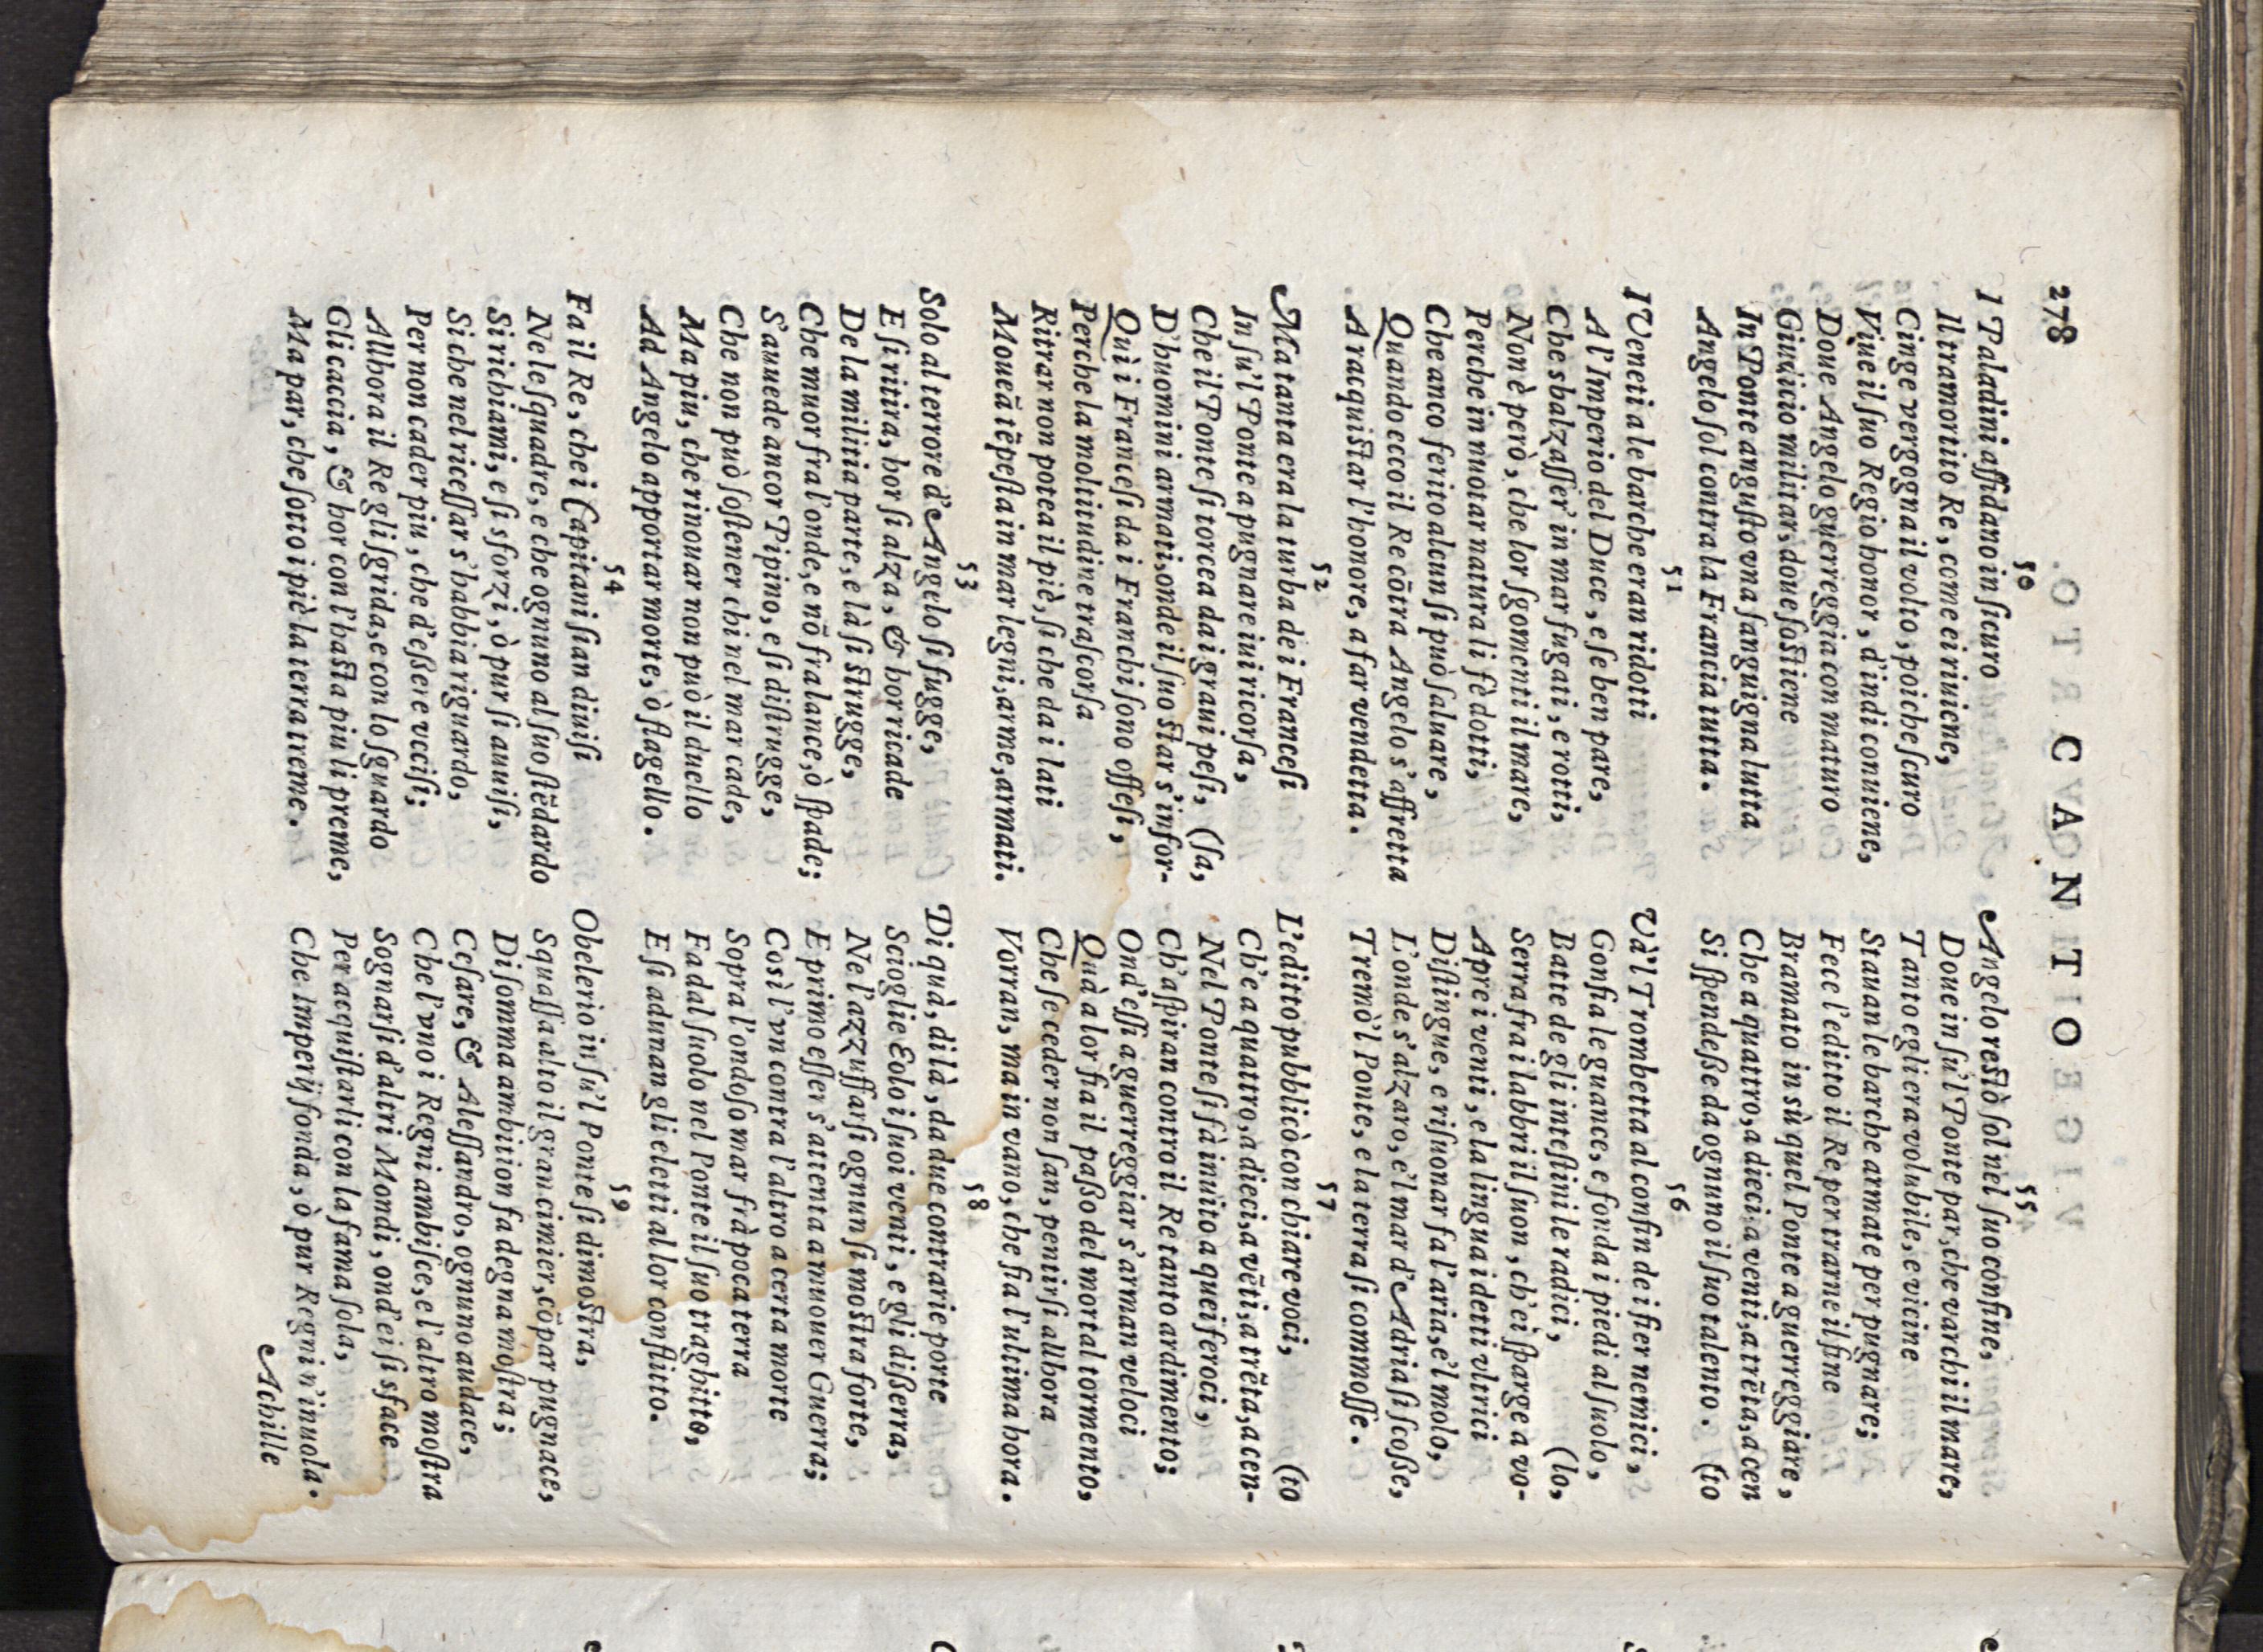 278
CANTO
50
I Paladini aſſidano in ſicuro
Il tramortito Re, come ei riuiene,
Cinge vergogna il volto, poiche ſcuro
Viue il ſuo Regio honor, d'indi conuiene,
Doue Angelo guerreggia con maturo
Giudicio militar, doue ſoſtiene
In Ponte anguſto vna ſanguigna lutta
Angelo ſol contra la Francia tutta.
51
I Veneti a le barche eran ridotti
A l'Imperio del Duce, e ſe ben pare,
Che sbalzaſſer' in mar fugati, e rotti,
Non è però, che lor ſgomenti il mare,
Perche in nuotar natura li fè dotti,
Che anco ferito alcun ſi può ſaluare,
Quando ecco il Re cõtra Angelo s'affretta
A racquiſtar l'honore, a far vendetta.
52
Ma tanta era la turba de i Franceſi
In ſu'l Ponte a pugnare iui ricorſa,
Che il Ponte ſi torcea da i graui peſi, (ſa,
D'huomini armati, onde il ſuo ſtar s'infor-
Quì i Franceſi da i Franchi ſono offeſi,
Perche la moltitudine traſcorſa
Ritrar non potea il piè, ſi che da i lati
Moueã tẽpeſta in mar legni, arme, armati.
53
Solo al terrore d'Angelo ſi fugge,
E ſi ritira, hor ſi alza, & hor ricade
De la militia parte, e là ſi ſtrugge,
Che muor fra l'onde, e nõ fra lance, ò ſpade;
S'auuede ancor Pipino, e ſi diſtrugge,
Che non può ſoſtener chi nel mar cade,
Ma piu, che rinouar non può il duello
Ad Angelo apportar morte, ò flagello.
54
Fa il Re, che i Capitani ſian diuiſi
Ne le ſquadre, e che ognuno al ſuo ſtẽdardo
Si richiami, e ſi sforzi, ò pur ſi auuiſi,
Si che nel riceſſar s'habbia riguardo,
Per non cader piu, che d'eßere vcciſi;
Allhora il Re gli ſgrida, e con lo ſguardo
Gli caccia, & hor con l'haſta piu li preme,
Ma par, che ſotto i piè la terra treme.
55
Angelo reſtò ſol nel ſuo confine,
Doue in ſu'l Ponte par, che varchi il mare,
Tanto egli era volubile, e vicine
Stauan le barche armate per pugnare;
Fece l'editto il Re per trarne il fine
Bramato in sù quel Ponte a guerreggiare,
Che a quattro, a dieci, a venti, a trẽta, a cen
Si ſpendeße da ognuno il ſuo talento. (to
56
Và'l Trombetta al confin de i fier nemici,
Gonfia le guance, e fonda i piedi al ſuolo,
Batte de gli inteſtini le radici, (lo,
Serra fra i labbri il ſuon, ch'ei ſparge a vo-
Apre i venti, e la lingua i detti vltrici
Diſtingue, e riſuonar fa l'aria, e'l molo,
L'onde s'alzaro, e'l mar d'Adria ſi ſcoße,
Tremò'l Ponte, e la terra ſi commoſſe.
57
L'editto pubblicò con chiare voci, (to
Ch'e a quattro, a dieci, a vẽti, a trẽta, a cen-
Nel Ponte ſi fà inuito a quei feroci,
Ch'aſpiran contro il Re tanto ardimento;
Ond'eſſi a guerreggiar s'arman veloci
Quà a lor fia il paßo del mortal tormento,
Che ſe ceder non ſan, pentirſi allhora
Vorran, ma in vano, che fia l'ultima hora.
58
Di quà, di là, da due contrarie porte
Scioglie Eolo i ſuoi venti, e gli dißerra,
Ne l'azzuffarſi ognun ſi moſtra forte,
E primo eſſer s'attenta a muouer Guerra;
Così l'vn contra l'altro a certa morte
Sopra l'ondoſo mar frà poca terra
Fa dal ſuolo nel Ponte il ſuo traghitto,
E ſi adunan gli eletti al lor conflitto.
59
Obelerio in ſu'l Ponte ſi dimoſtra,
Squaſſa alto il gran cimier, cõ par pugnace,
Di ſomma ambition fa degna moſtra;
Ceſare, & Aleſſandro, ognuno audace,
Che l'vno i Regni ambiſce, e l'altro moſtra
Sognarſi d'altri Mondi, ond'ei ſi sface
Per acquiſtarli con la fama ſola,
Che Imperij fonda, ò pur Regni n'inuola.
Achille